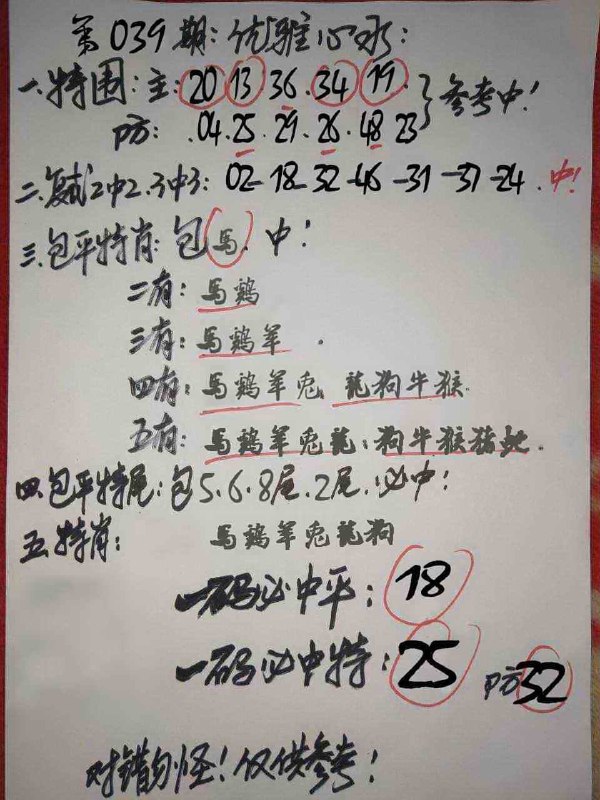 第039期:优雅心水:
一.特围:主:20 13 36.34 19. }参考中!
防: .04.25.29.26.48 23
二.复试2中2.3中3: 02-18-32-46-31-37-24.中!
三.包平特肖:包馬.中!
二有:馬鷄
三有:馬鷄羊.
四有:馬鷄羊兔.龍狗牛猴.
五有:馬鷄羊兔龍:狗牛猴猪蛇.
四.包平特尾:包5.6.8尾.2尾.必中!
五.特肖: 馬鷄羊兔龍狗
一码必中平:18
一码必中特:25 防32
对错勿怪!仅供参考!